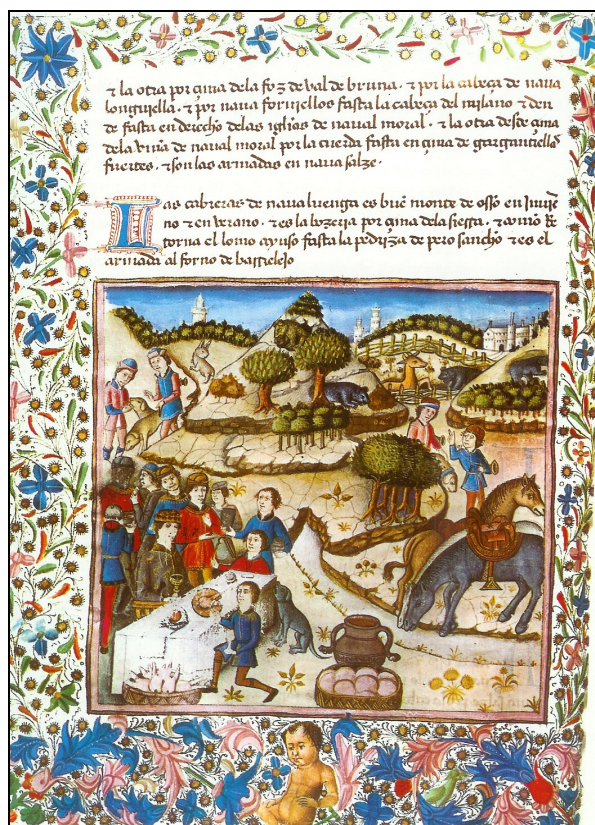 ⁊ la otra por çima dela foz de val de bruna. ⁊ por la cabeça de naua
longuiella. ⁊ por naua fornjellos fasta la cabeça del mjlano ⁊ den
de fasta en derecho delas iglīas de naual moral. ⁊ la otra desde çima
dela vin̄a de naual moral por la cuerda fasta en çima de gargantiella
fuertes. ⁊ son las armadas en naua salze.
Las cabreras de naua luenga es buē monte de osso en Inujer
no ⁊ en verano. ⁊ es la bozeria por çima dela sierra. ⁊ como
torna el lomo ayuso fasta la pedriza de pero sancho ⁊ es el
armada al forno de